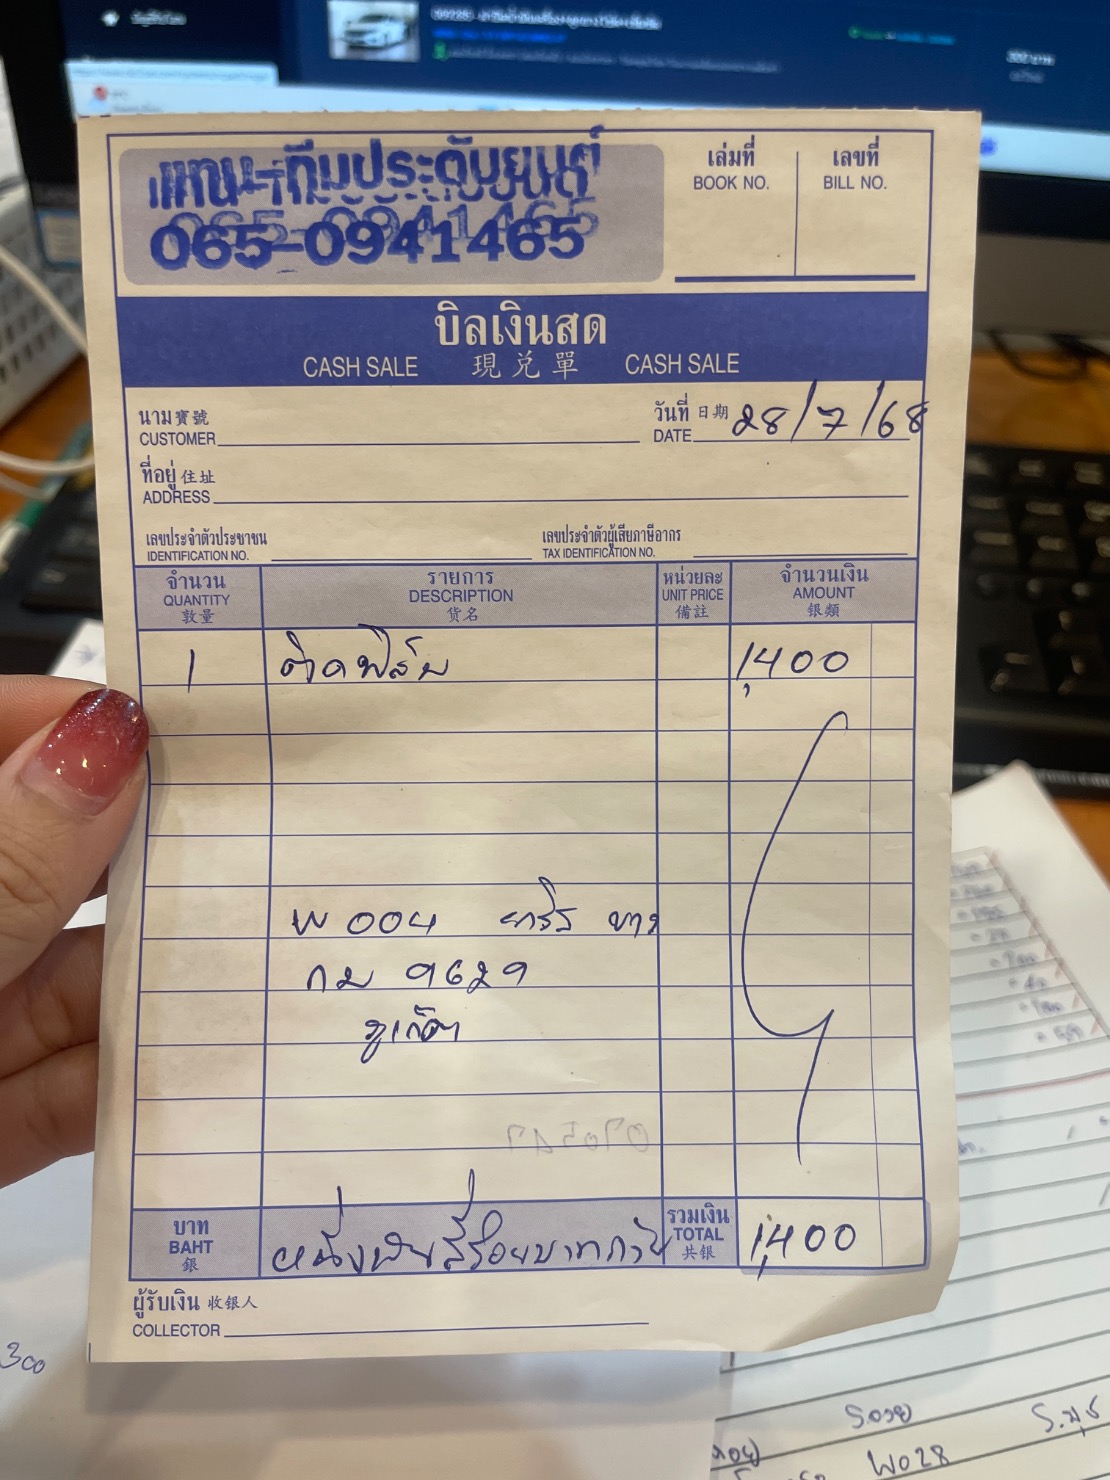 แทน-ทีมประดับยนต์
065-0941465
เล่มที่ เลขที่
BOOK NO. BILL NO.
บิลเงินสด
CASH SALE 現兌單 CASH SALE
นาม 寶號 วันที่ 日期
CUSTOMER DATE 28/7/68
ที่อยู่ 住址
ADDRESS
เลขประจำตัวประชาชน เลขประจำตัวผู้เสียภาษีอากร
IDENTIFICATION NO. TAX IDENTIFICATION NO.
จำนวน รายการ หน่วยละ จำนวนเงิน
QUANTITY DESCRIPTION UNIT PRICE AMOUNT
貨名 備註
1 ติดฟิล์ม 1,400
W 004 ยาริส ขาว
กม 9629
ภูเก็ต
บาท หนึ่งพันสี่ร้อยบาทถ้วน รวมเงิน 1,400
BAHT TOTAL
銀 共銀
ผู้รับเงิน 收銀人
COLLECTOR
300
W028